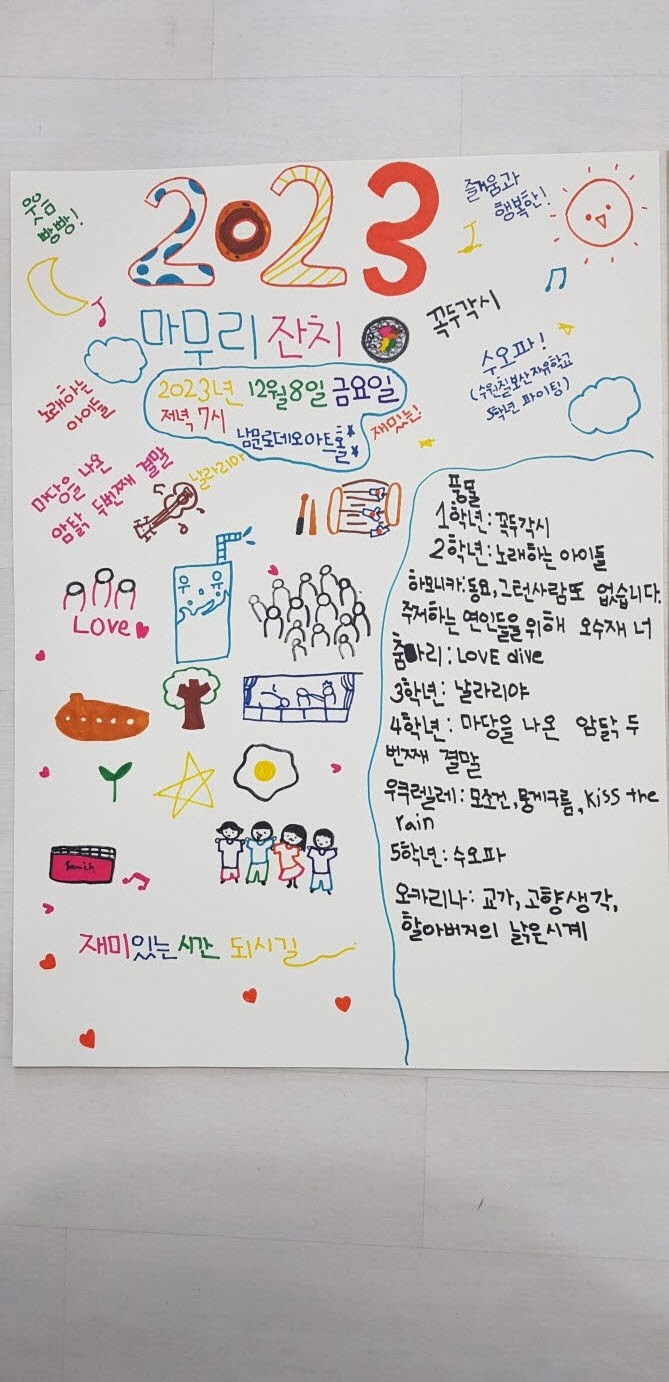 웃음
빵빵!
2023
즐거움과
행복한!
마무리 잔치
꼭두각시
노래하는
아이들
2023년 12월 8일 금요일
저녁 7시
남문로데오아트홀
재밌는!
수오파!
(수원칠보산자유학교
5학년 파이팅)
마당을 나온
암탉 두번째 결말
날라리야
우유
LOVE
Samick
재미있는 시간 되시길
풍물
1학년: 꼭두각시
2학년: 노래하는 아이들
하모니카: 동요, 그런사람또 없습니다.
주저하는 연인들을 위해 오수재 너
춤 리: LOVE dive
3학년: 날라리야
4학년: 마당을 나온 암탉 두
번째 결말
우쿠렐레: 모소건, 뭉게구름, kiss the
rain
5학년: 수오파
오카리나: 교가, 고향생각,
할아버지의 낡은시계